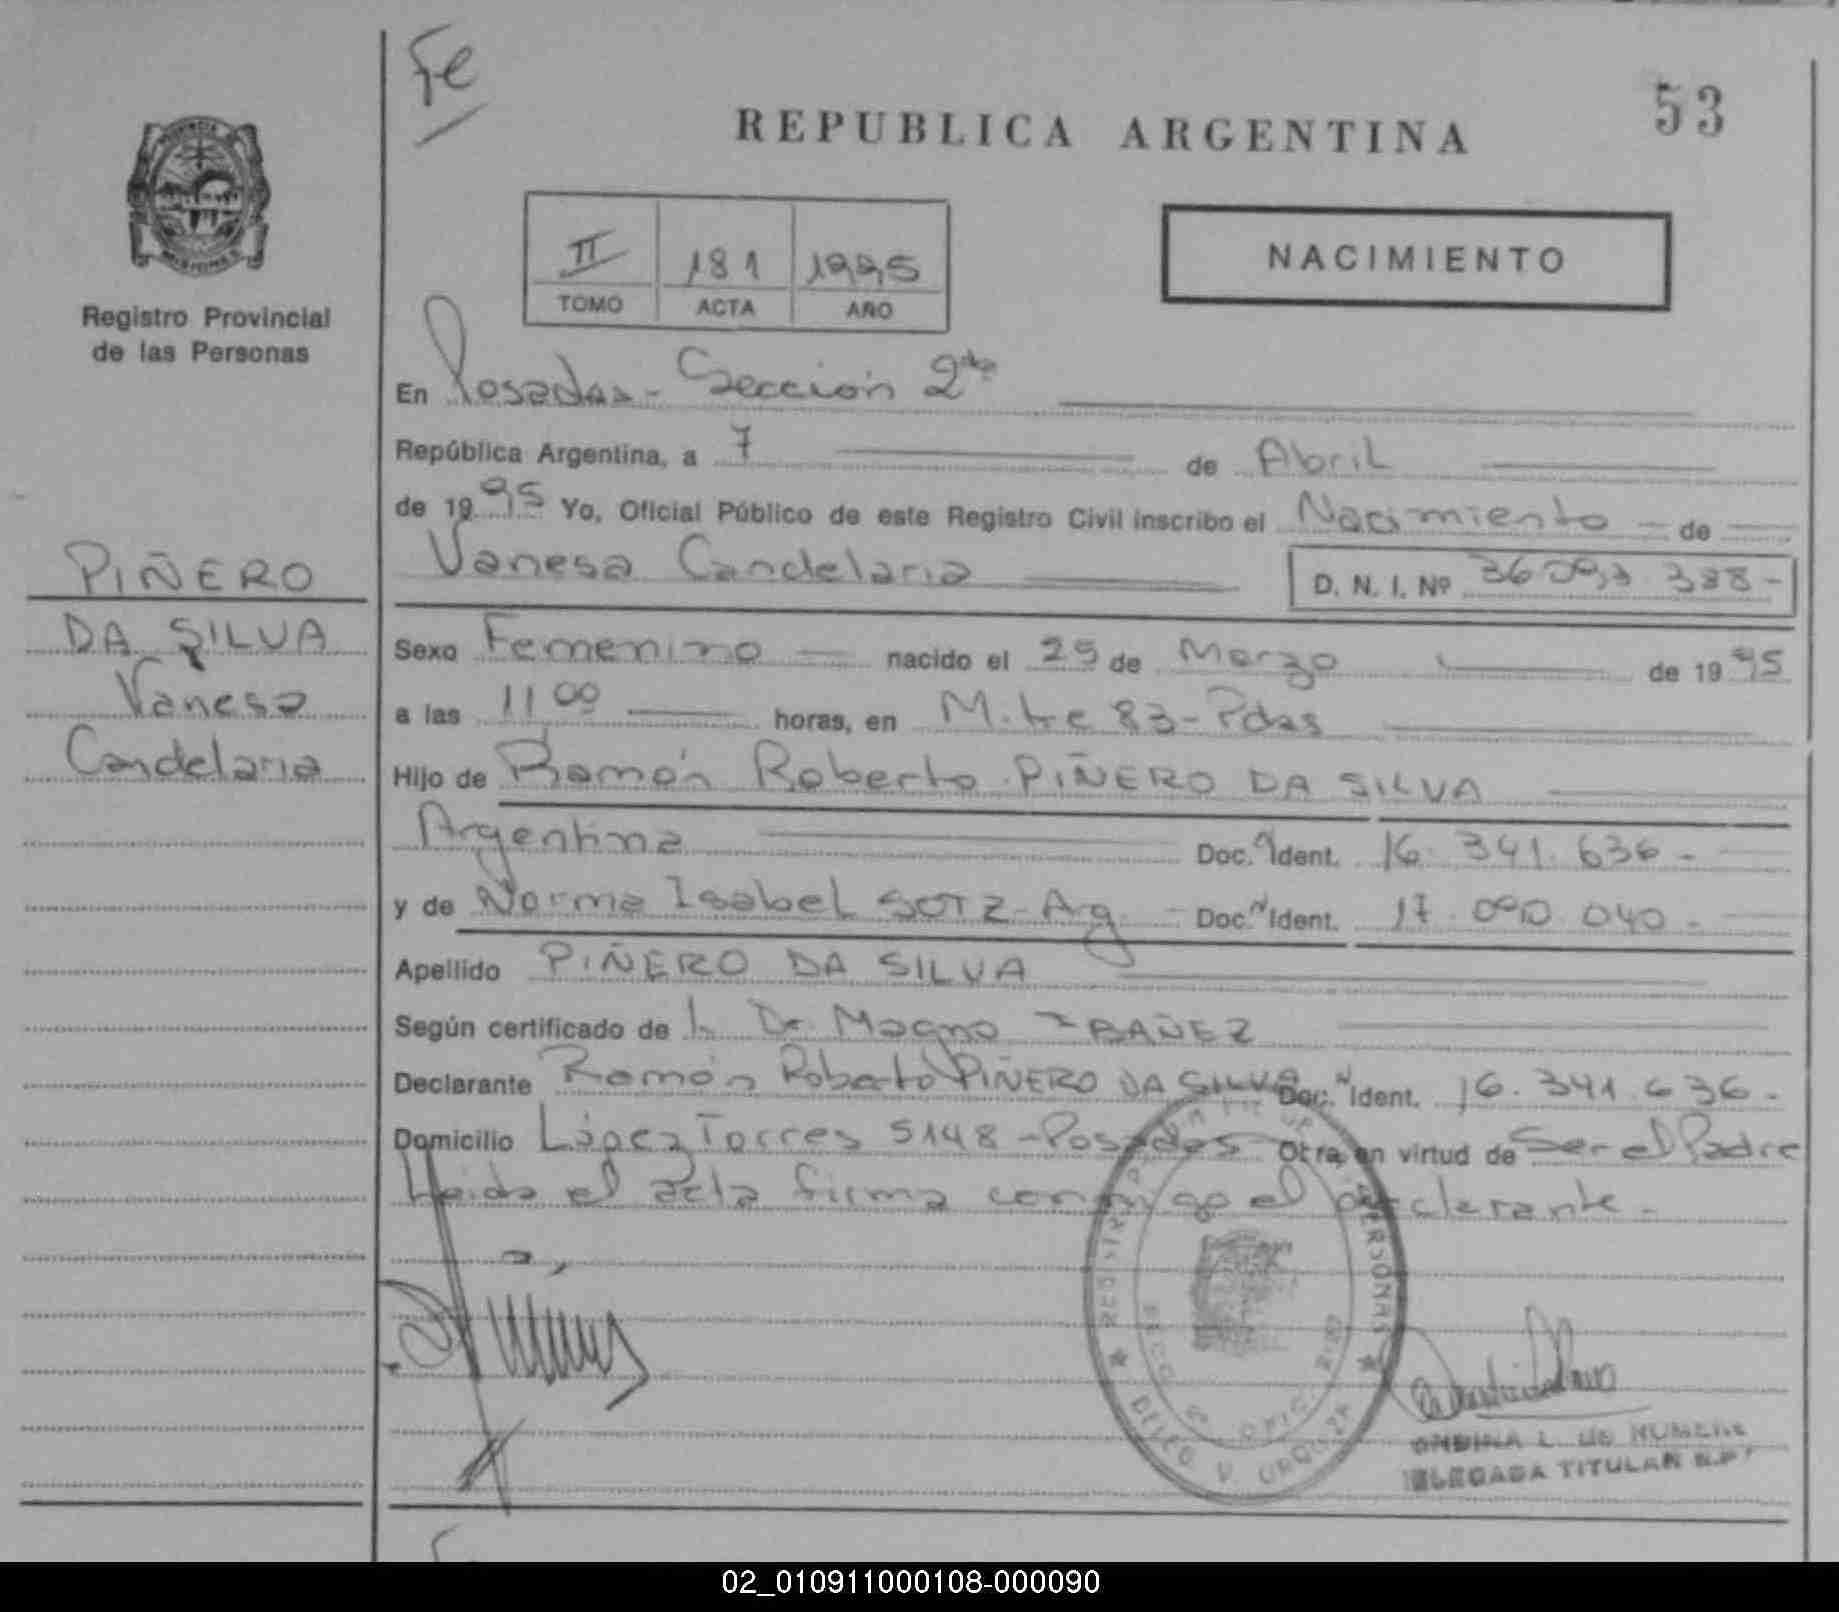 Fe
53
REPUBLICA ARGENTINA
II 181 1995
TOMO ACTA AÑO
NACIMIENTO
Registro Provincial
de las Personas
PIÑERO
DA SILVA
Vanesa
Candelaria
En Posadas - Sección 2da
República Argentina, a 7 de Abril
de 1995 Yo, Oficial Público de este Registro Civil inscribo el Nacimiento de
Vanesa Candelaria D. N. I. Nº 36.093.388-
Sexo Femenino nacido el 29 de Marzo de 1995
a las 11 00 horas, en Mitre 83 - Pdas
Hijo de Ramón Roberto PIÑERO DA SILVA
Argentina Doc. N Ident. 16.341.636-
y de Norma Isabel SOTZ - Arg. - Doc. N Ident. 17.090.040-
Apellido PIÑERO DA SILVA
Según certificado de Dr Magno IBAÑEZ
Declarante Ramón Roberto PIÑERO DA SILVA Doc. N Ident. 16.341.636-
Domicilio López Torres 5148 - Posadas Otra, en virtud de Ser el Padre
Leida el acta firma conmigo el declarante.-
DELEGADA TITULAR R.P.
02_010911000108-000090